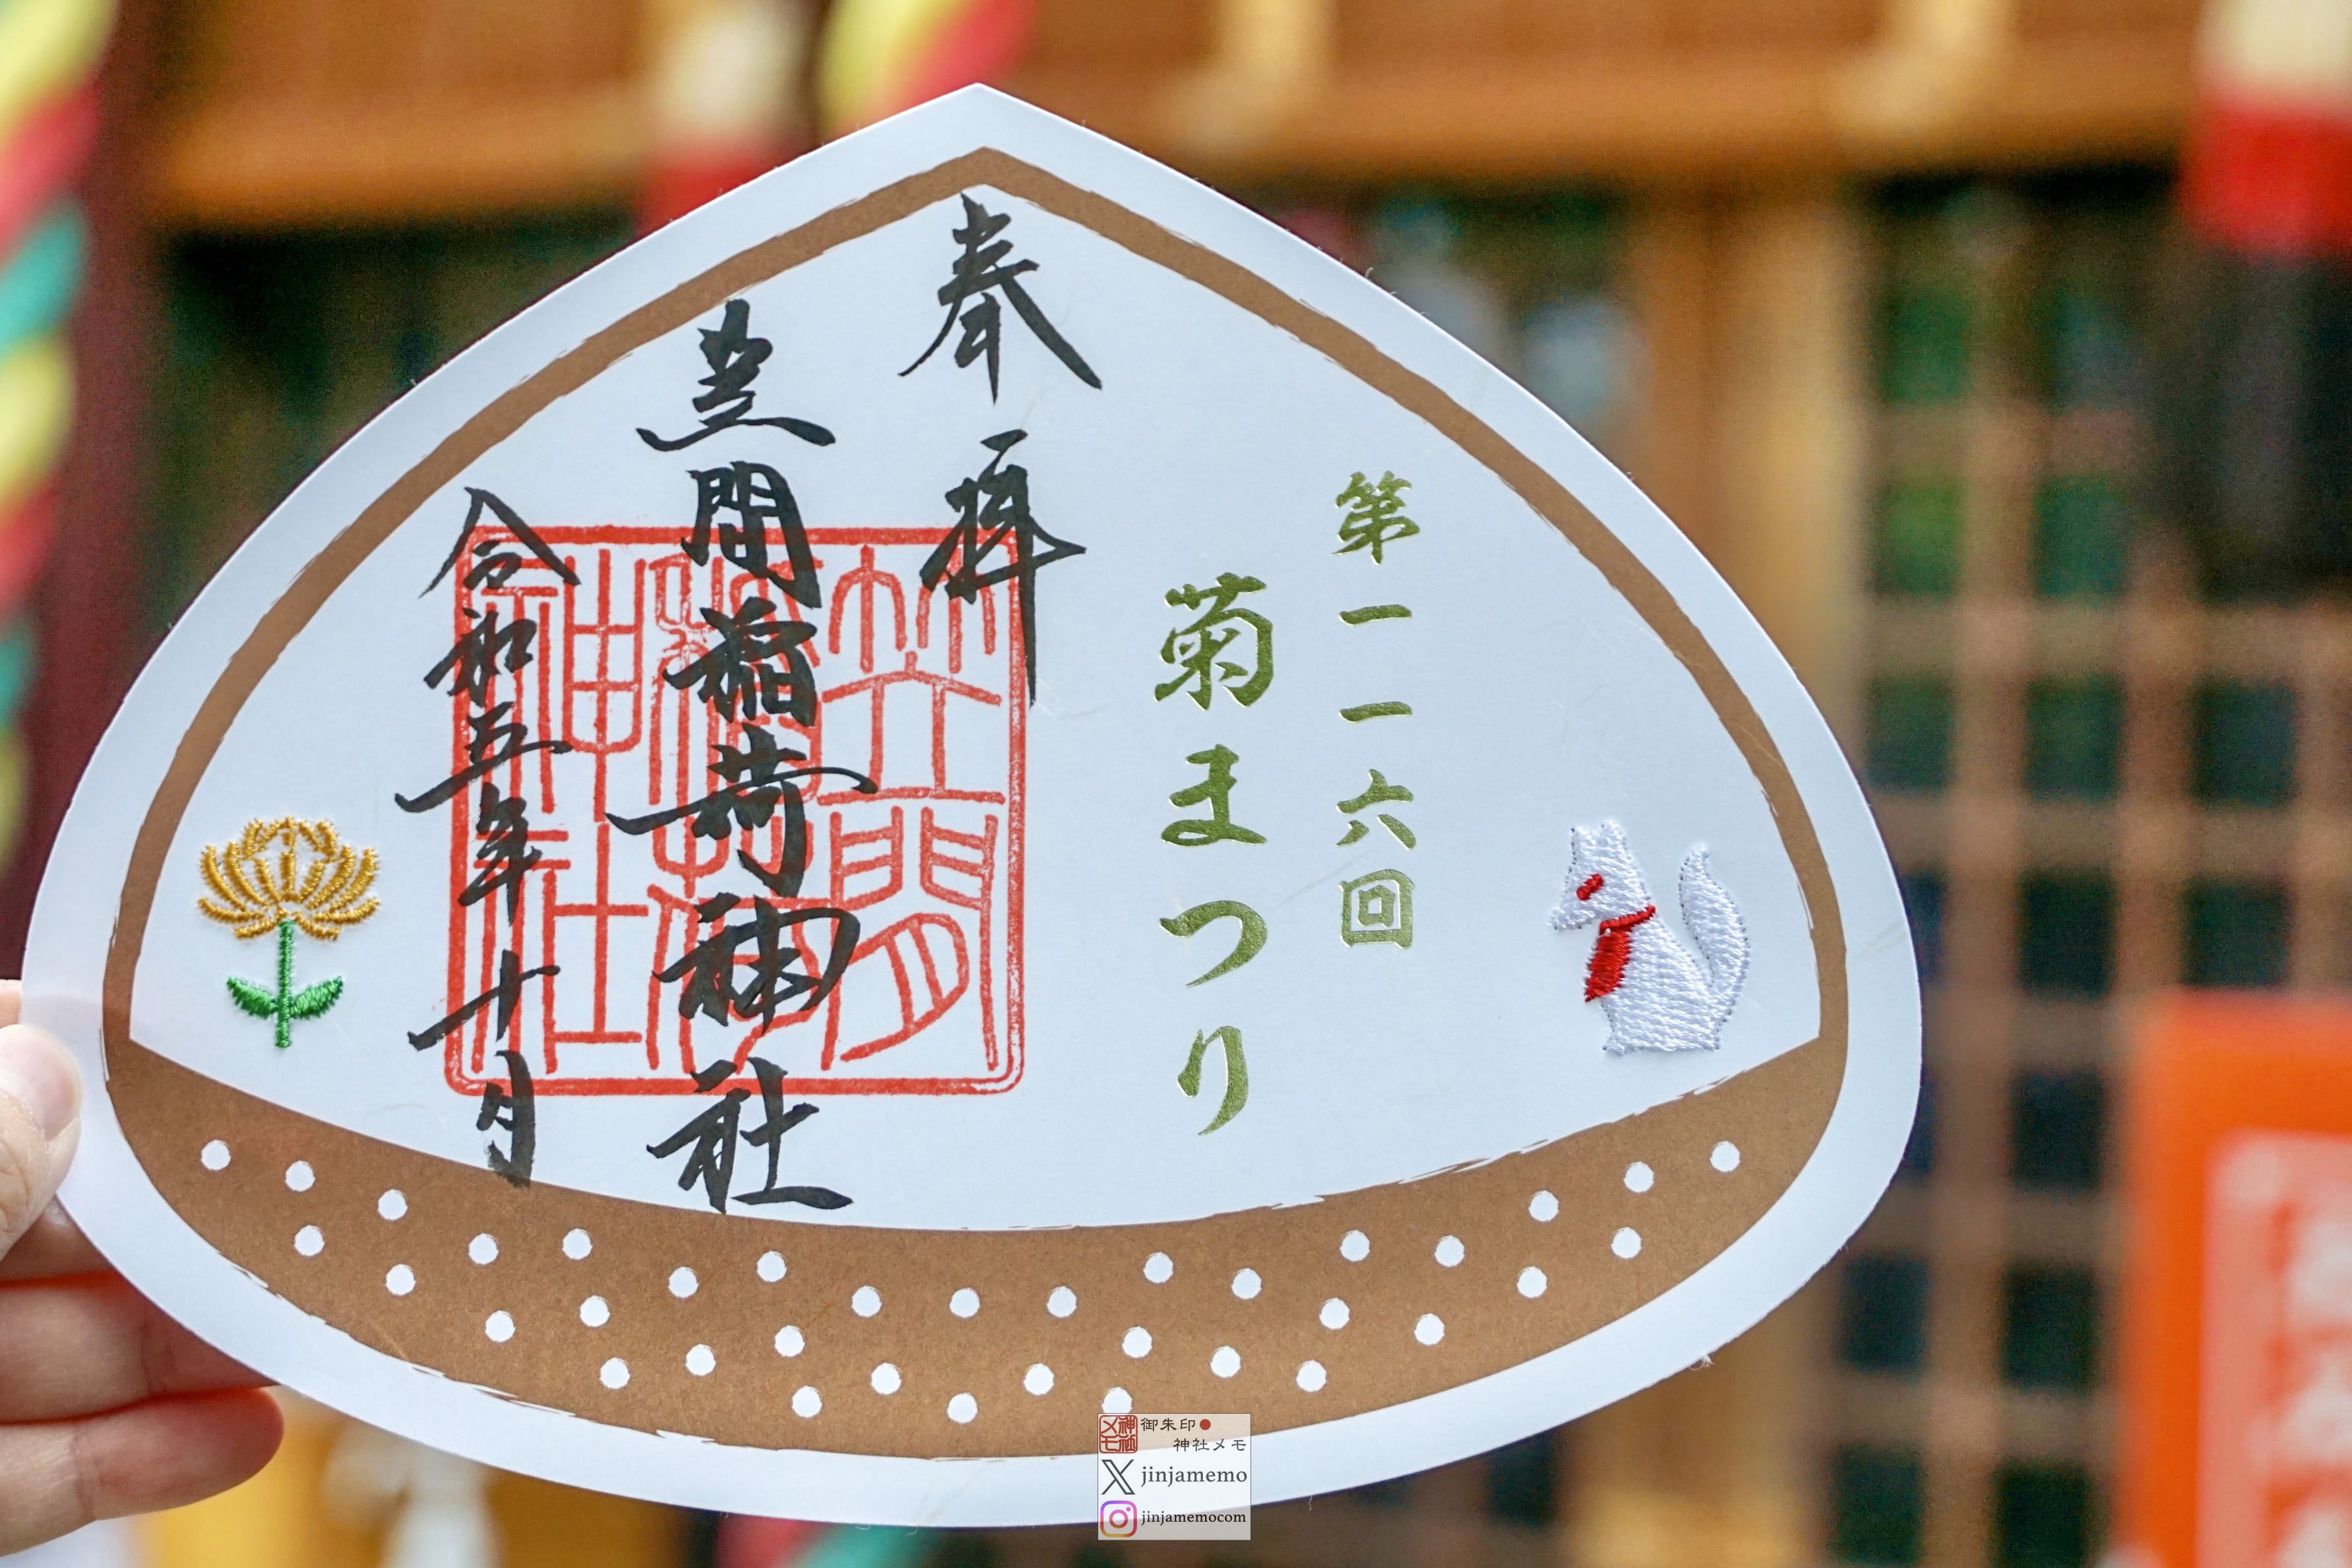 第一一六回
菊まつり
奉拝
笠間稲荷神社
笠間
稲荷
神社
令和五年十月
神社メモ
御朱印●
神社メモ
jinjamemo
jinjamemocom